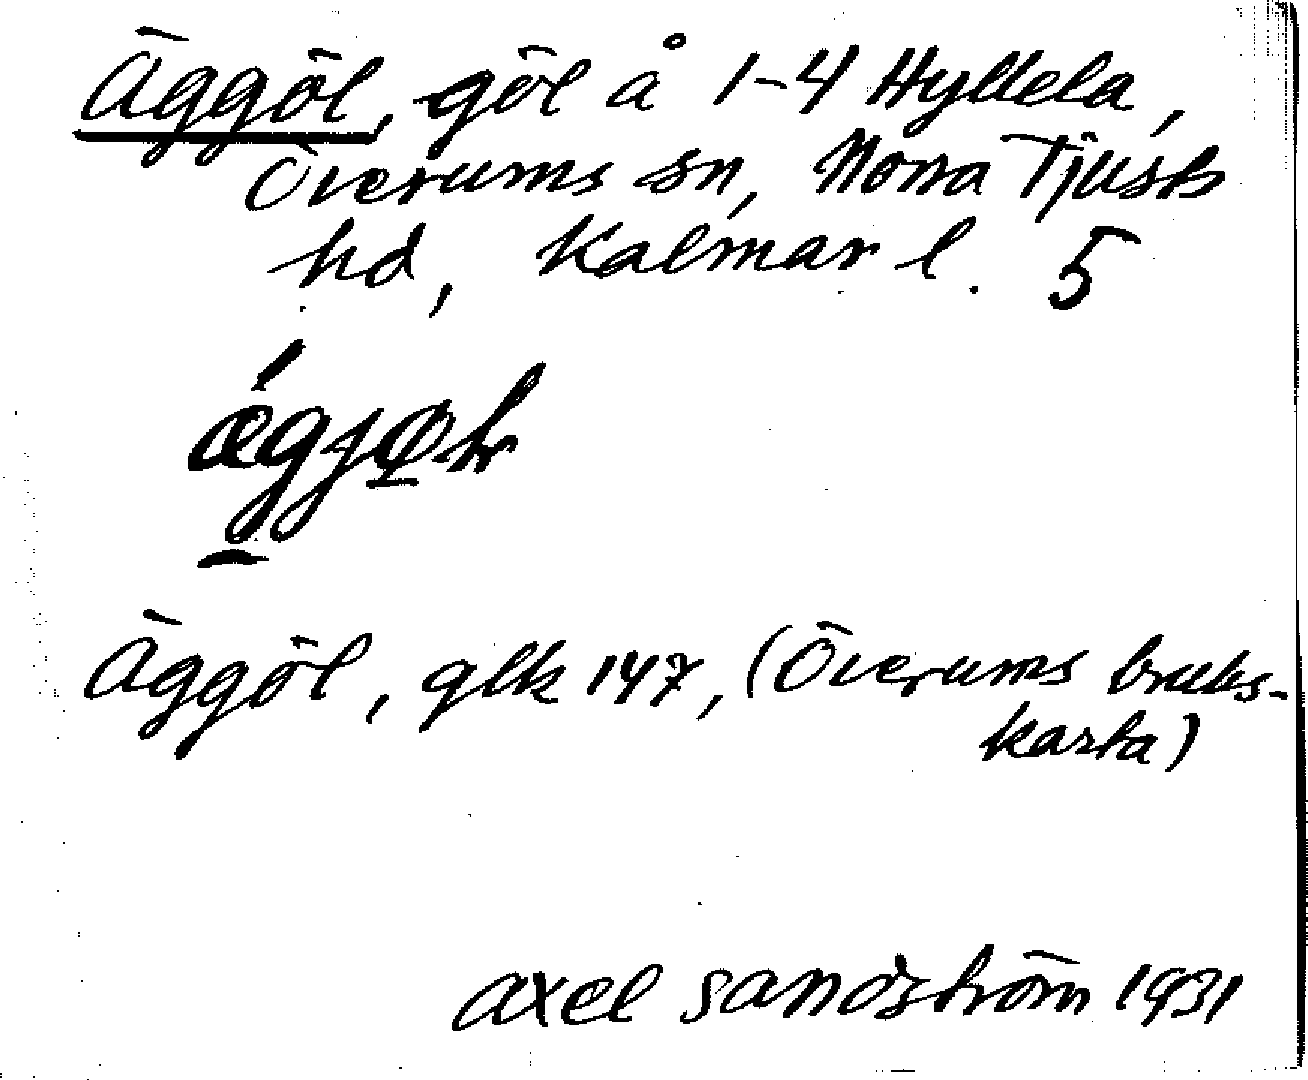 Äggöl, göl å 1-4 Hyllela,
Överums sn, Norra Tjusts
hd, Kalmar l. 5
Äggöl, glk 147, (Överums bruks-
karta)
Axel Sandström 1931